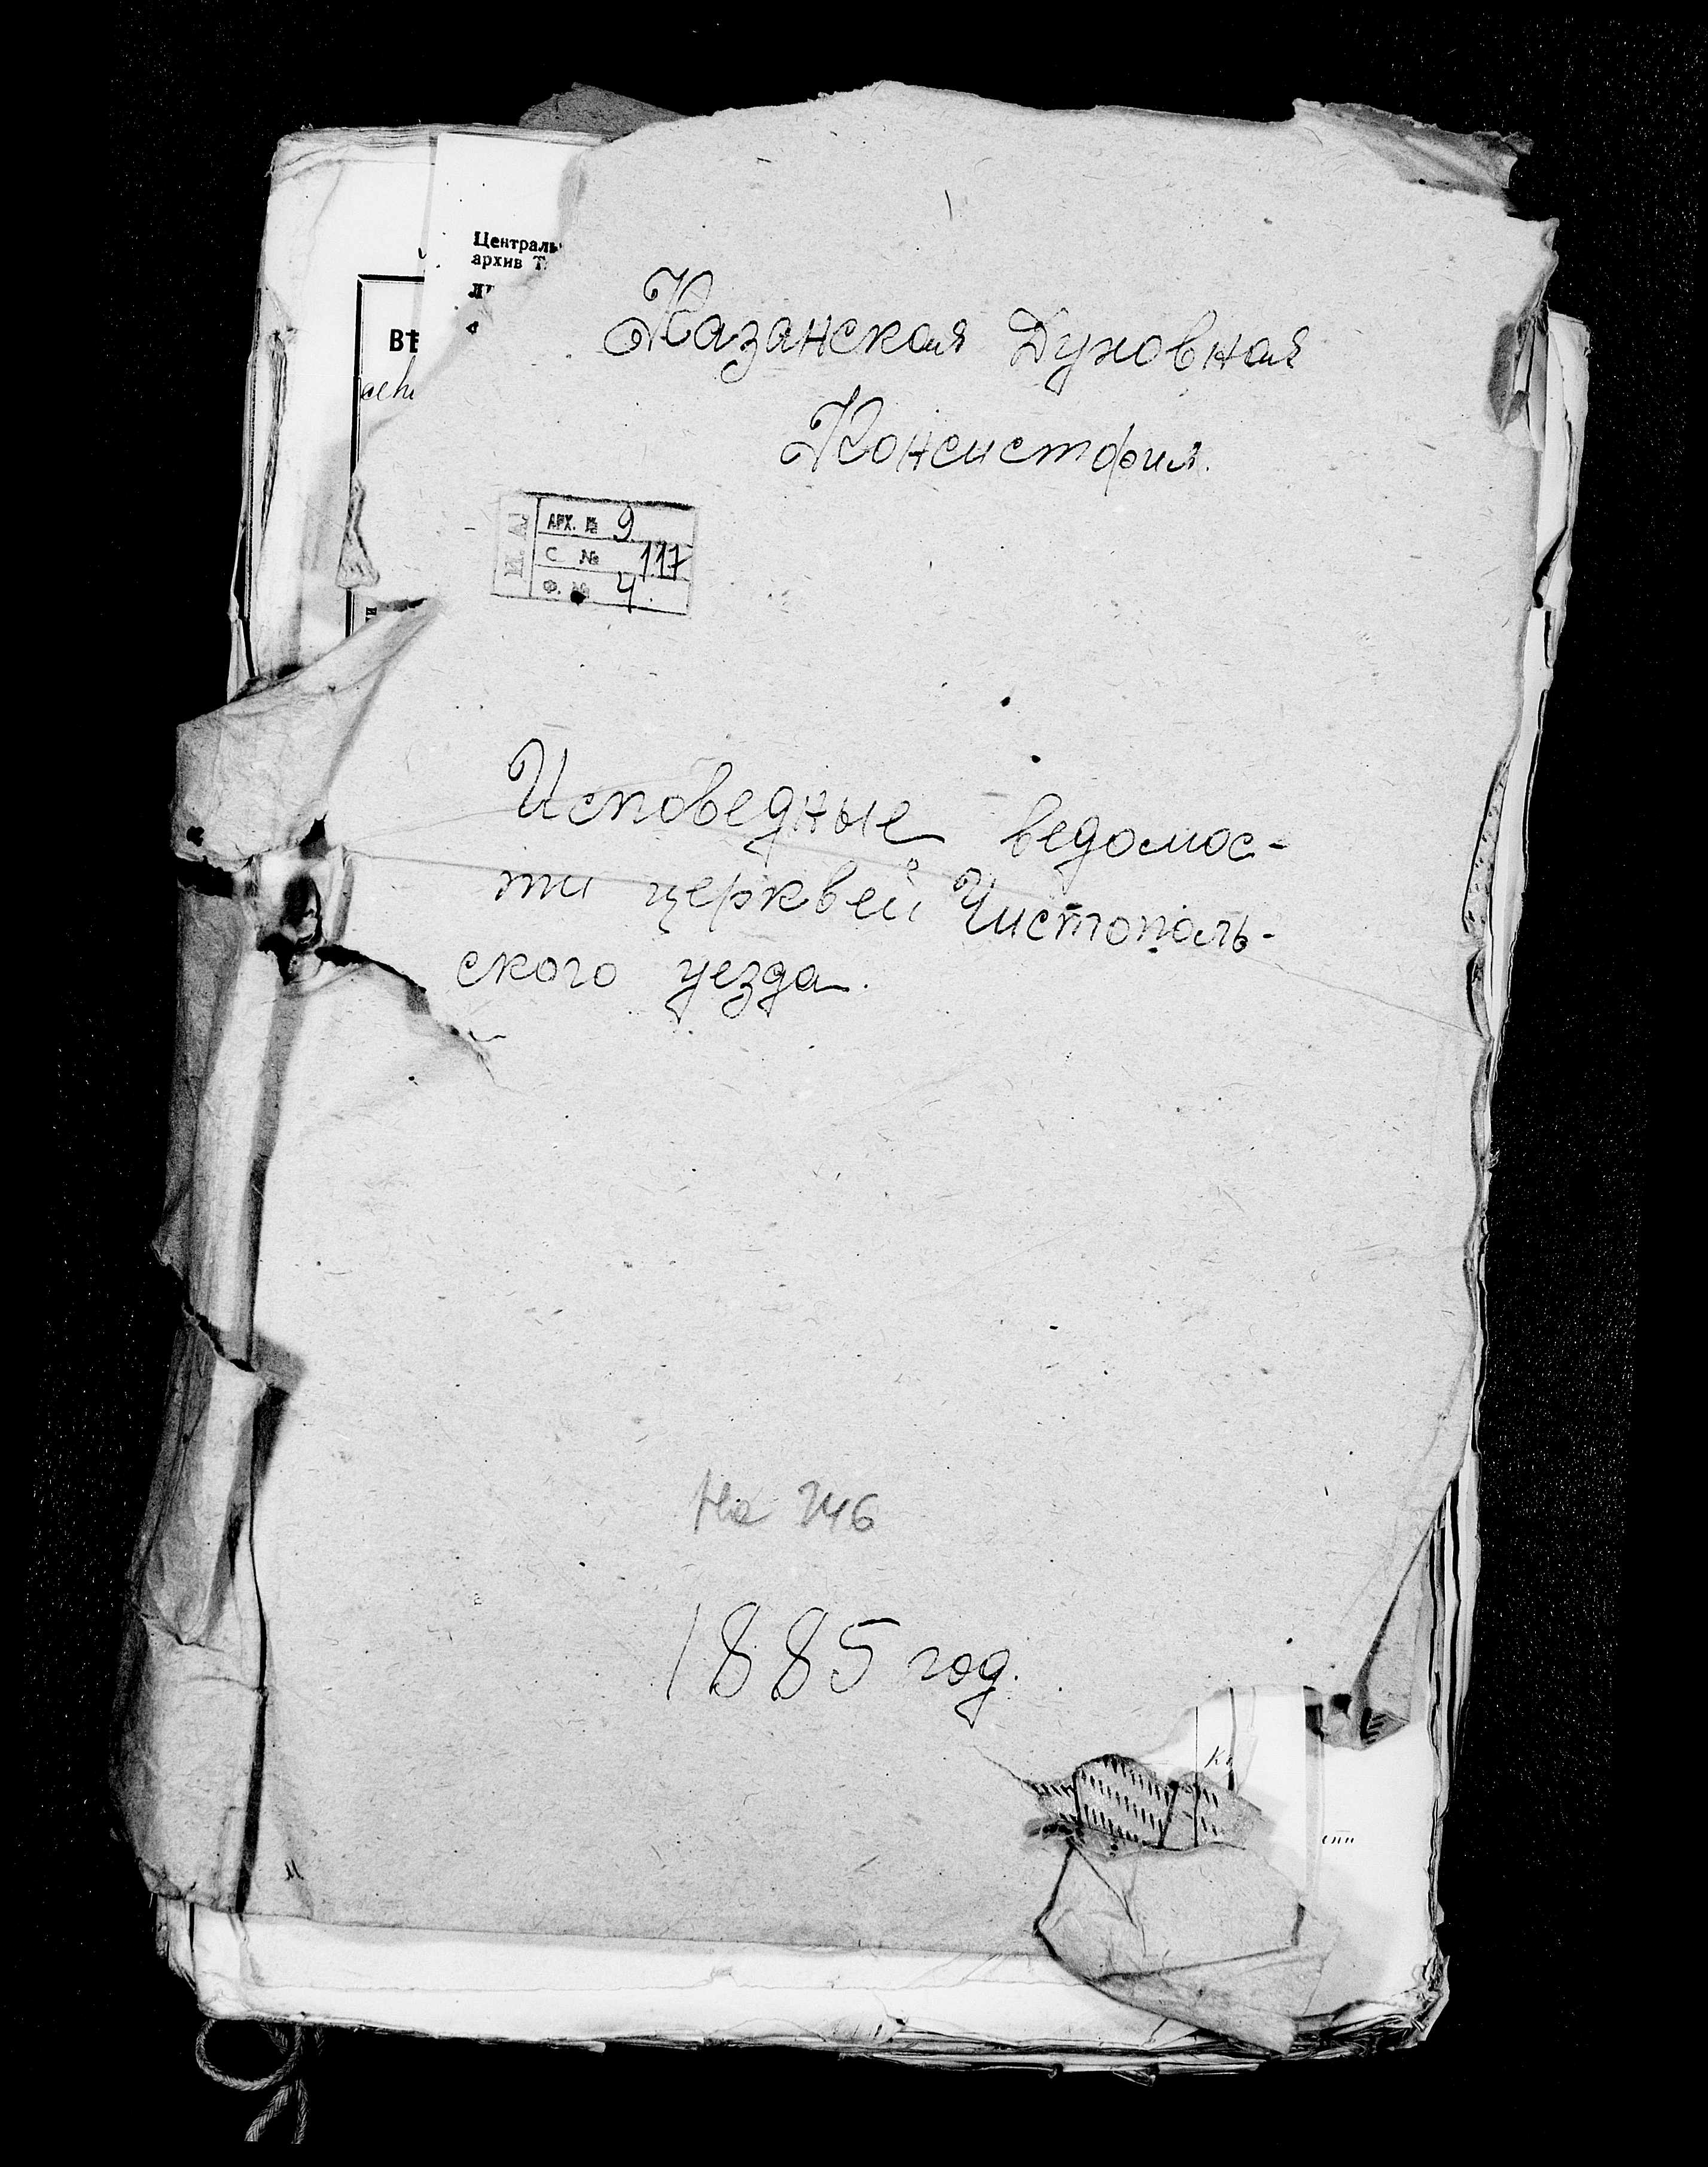 Казанская Духовная
Консистория.
АРХ. № 9
С № 117
Ф. № 4
Исповедные ведомос-
ти церквей Чистополь-
ского уезда.
На 746
1885 год.